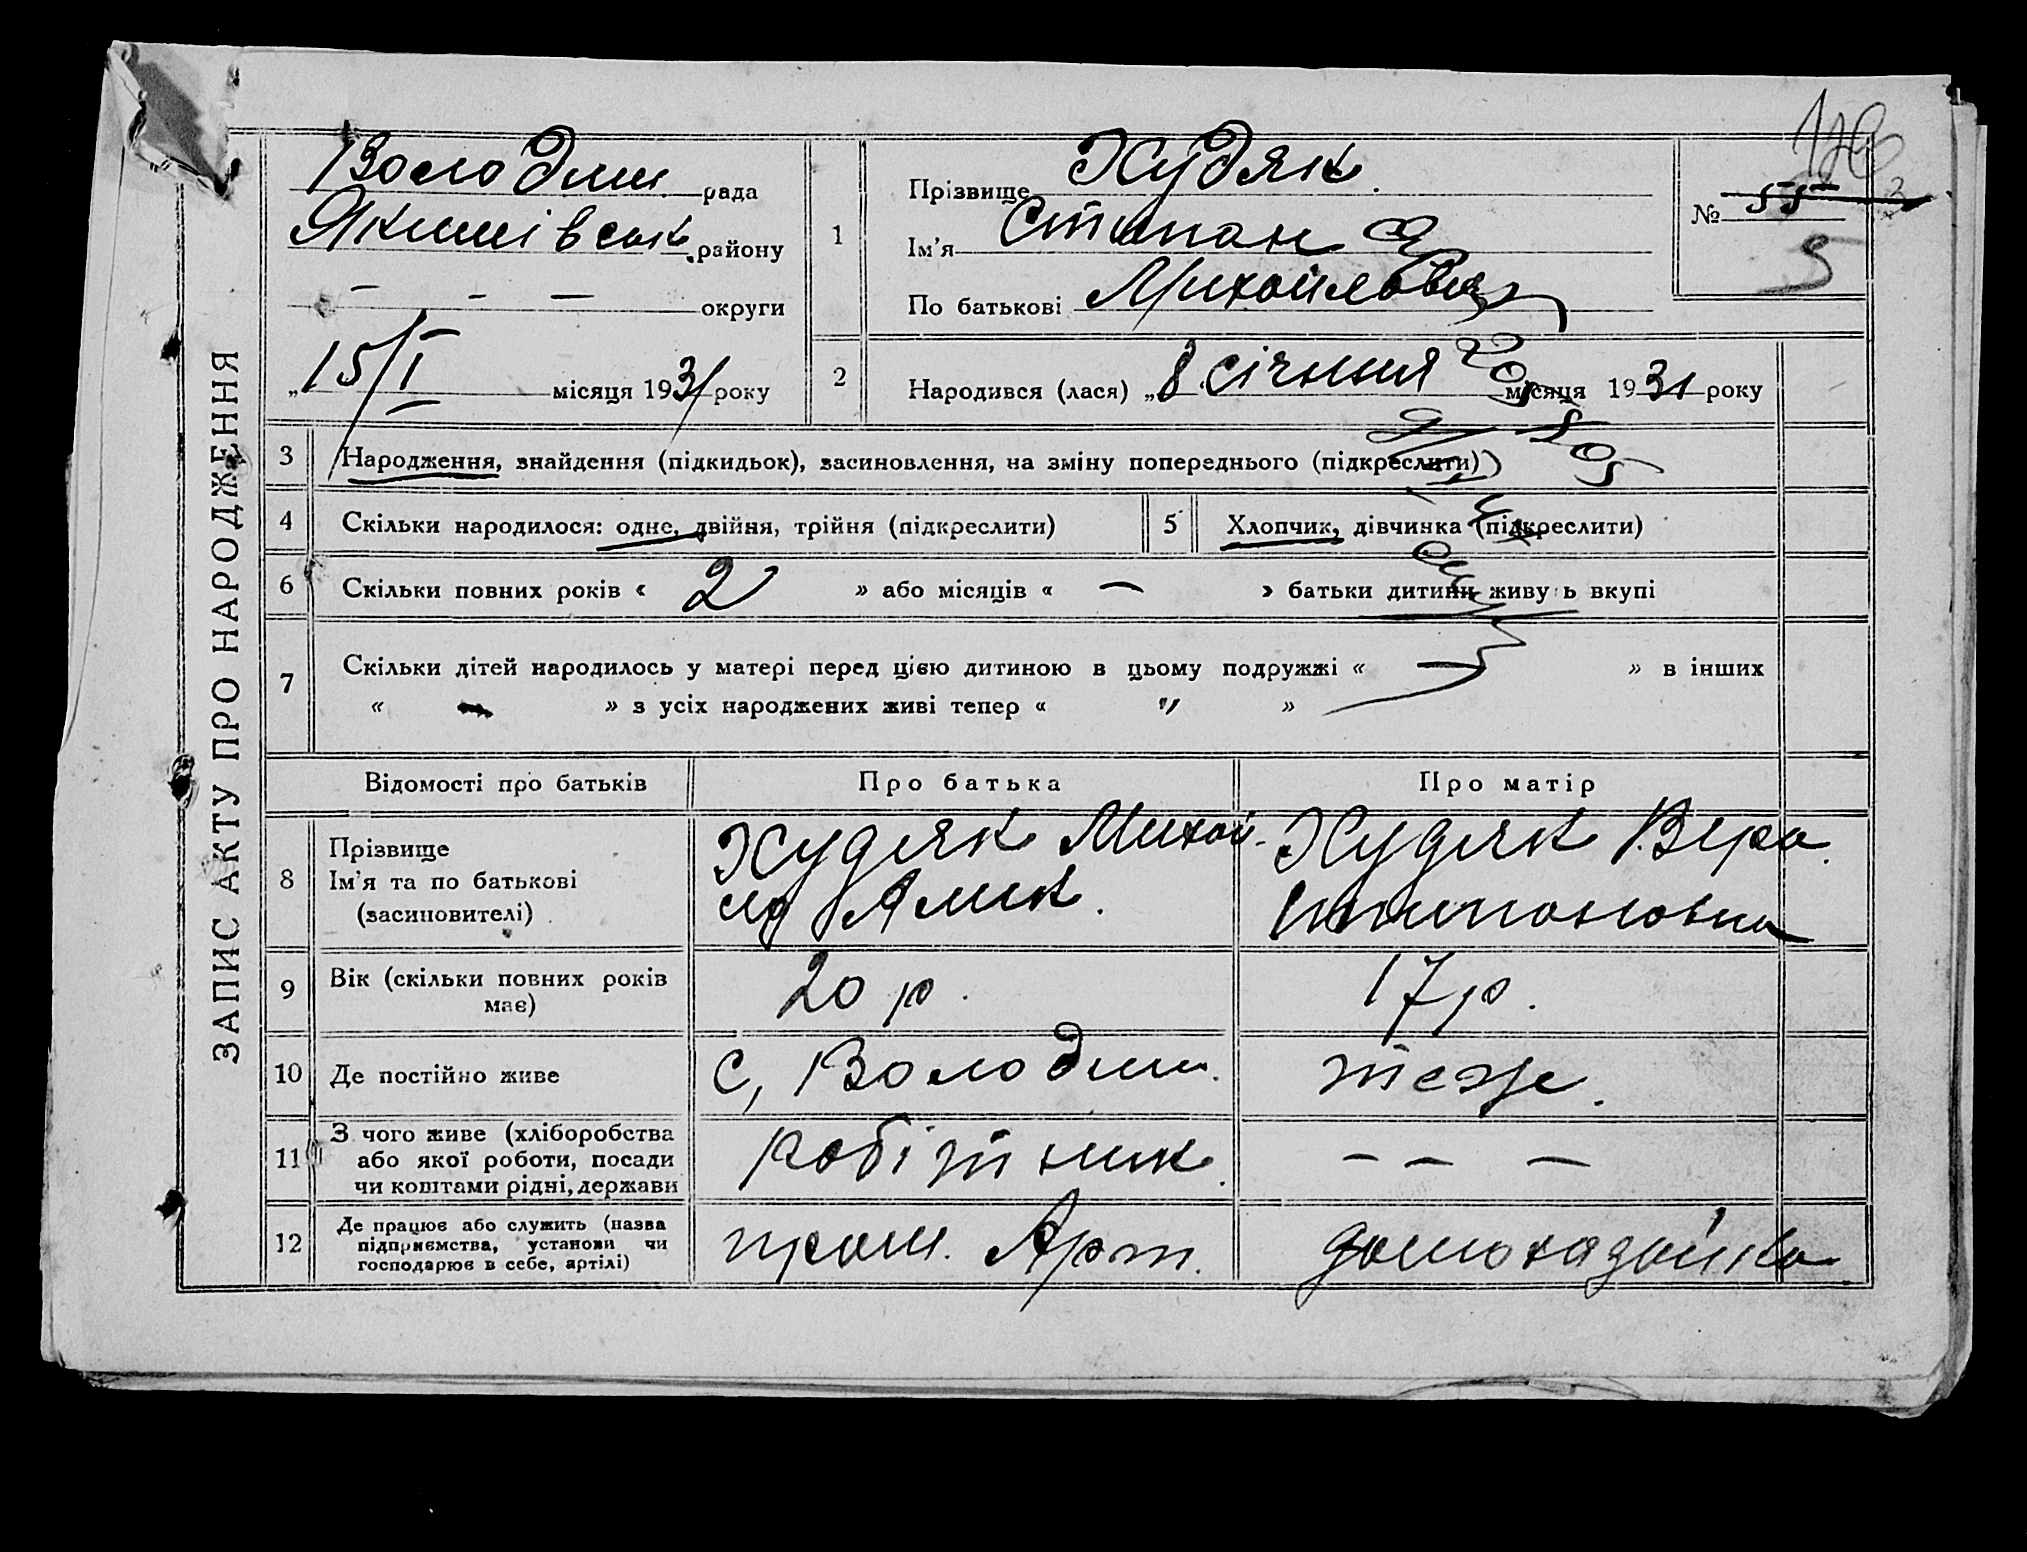 ЗАПИС АКТУ ПРО НАРОДЖЕННЯ
Володим. рада
Якимівськ. району
— — — округи
„15/I місяця 1931 року
1
Прізвище Худяк.
Ім'я Степан
По батькові Михайлович
№ 55
5
2
Народився (лася) „8 січння місяця 1931 року
3 Народження, знайдення (підкидьок), засиновлення, на зміну попереднього (підкреслити)
4 Скільки народилося: одне, двійня, трійня (підкреслити)
5 Хлопчик, дівчинка (підкреслити)
6 Скільки повних років « 2 » або місяців « — » батьки дитини живуть вкупі
7 Скільки дітей народилось у матері перед цією дитиною в цьому подружжі « — » в інших
« — » з усіх народжених живі тепер « " »
Відомості про батьків Про батька Про матір
8 Прізвище
Ім'я та по батькові
(засиновителі)
Худяк Михай-
ло
Худяк Вера
9 Вік (скільки повних років
має)
20 р.
17 р.
10 Де постійно живе
с, Володим.
теже.
11 З чого живе (хліборобства
або якої роботи, посади
чи коштами рідні, держави
робітник.
— — —
12 Де працює або служить (назва
підприємства, установи чи
господарює в себе, артілі)
пром. Арт.
домохазяйка